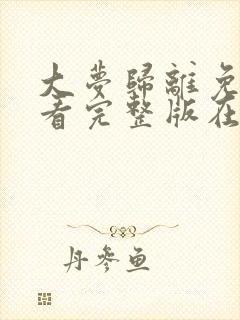 大夢歸離免
看完整版在
丹參魚